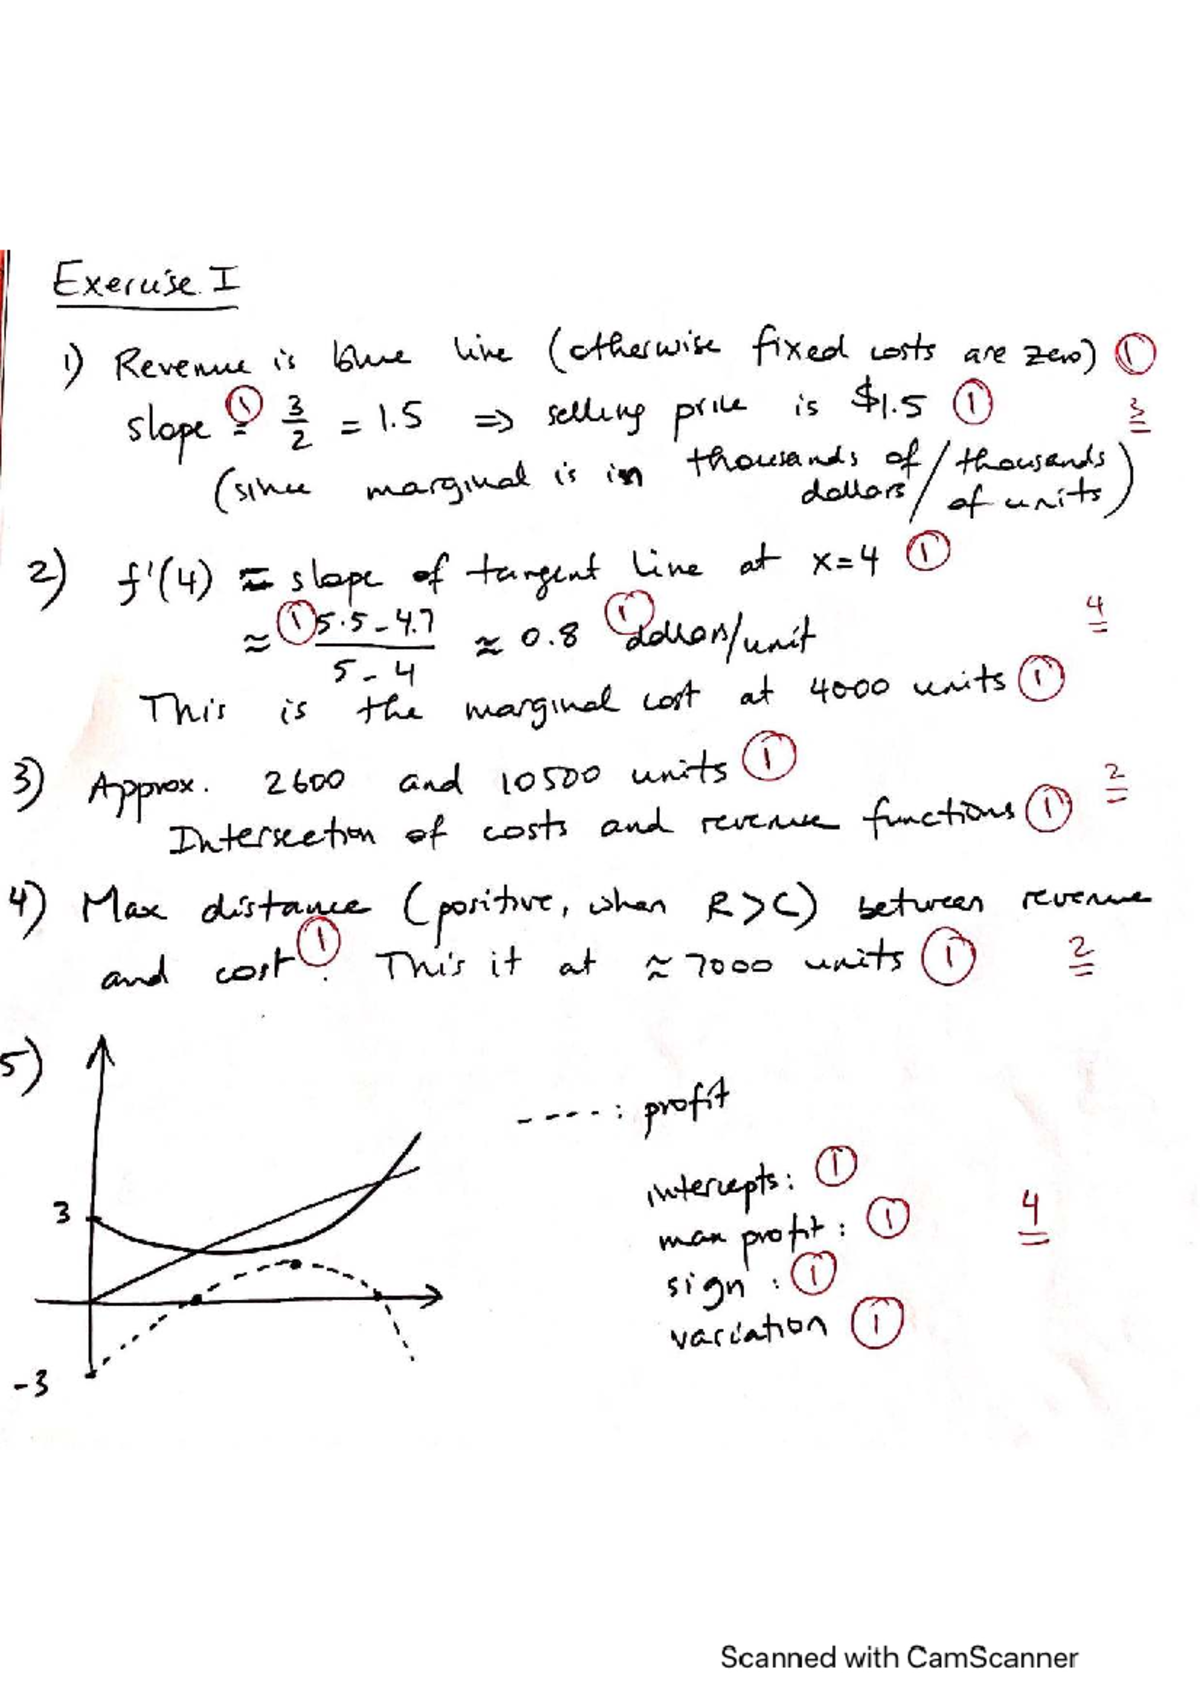 Exercise I
1) Revenue is blue line (otherwise fixed costs are zero) 1
slope = 1 3/2 = 1.5 ⇒ selling price is $1.5 1 3
(since marginal is in thousands of dollars / thousands of units)
2) f'(4) ≈ slope of tangent line at x=4 1
≈ 1 5.5-4.7 / 5-4 ≈ 0.8 1 dollars/unit 4
This is the marginal cost at 4000 units 1
3) Approx. 2600 and 10500 units 1 2
Intersection of costs and revenue functions 1
4) Max distance (positive, when R>C) between revenue
and cost 1. This it at ≈ 7000 units 1 2
5)
----: profit
3
intercepts: 1
max profit: 1 4
sign: 1
variation 1
-3
Scanned with CamScanner